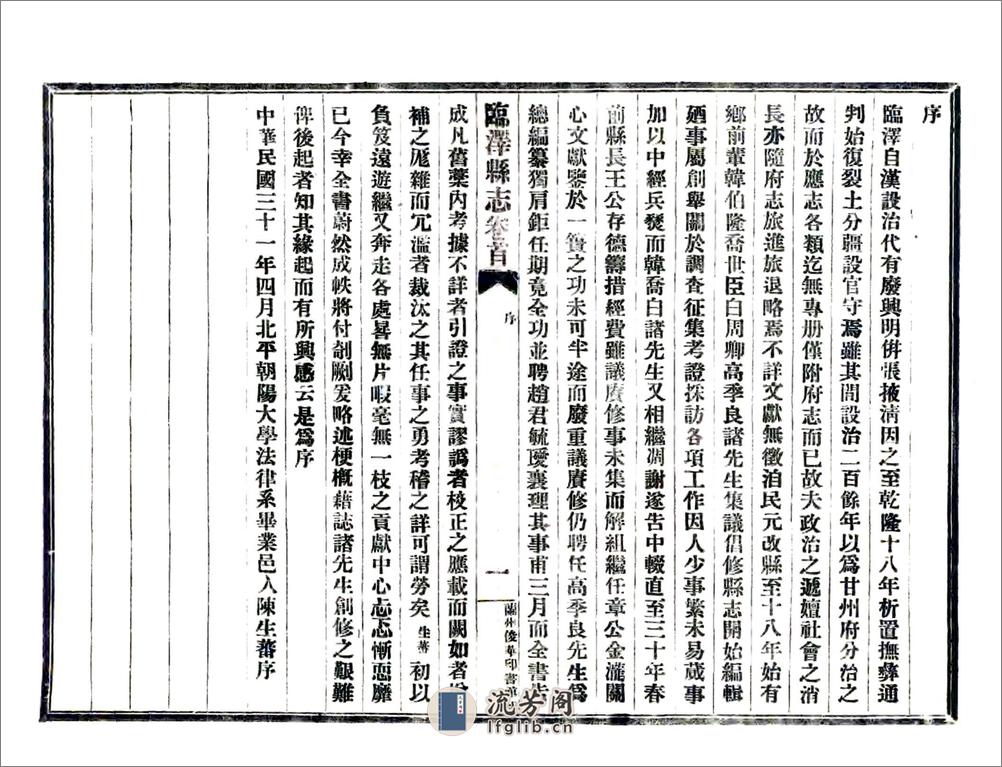 序
臨澤自漢設治代有廢興明倂張掖淸因之至乾隆十八年析置撫彝通
判始復裂土分疆設官守焉雖其間設治二百餘年以爲甘州府分治之
故而於應志各類迄無專册僅附府志而已故夫政治之遞嬗社會之消
長亦隨府志旅進旅退略焉不詳文獻無徵洎民元改縣至十八年始有
鄉前輩韓伯隆喬世臣白周卿高季良諸先生集議倡修縣志開始編輯
廼事屬創舉關於調查征集考證採訪各項工作因人少事繁未易蕆事
加以中經兵燹而韓喬白諸先生又相繼凋謝遂吿中輟直至三十年春
前縣長王公存德籌措經費雖議賡修事未集而解組繼任章公金瀧關
心文獻鑒於一簣之功未可半途而廢重議賡修仍聘任高季良先生爲
總編纂獨肩鉅任期竟全功並聘趙君毓璦襄理其事甫三月而全書告
臨澤縣志卷首
序
一
蘭州俊華印書館
成凡舊藁內考據不詳者引證之事實謬譌者校正之應載而闕如者增
補之厖雜而冗濫者裁汰之其任事之勇考稽之詳可謂勞矣生蕃初以
負笈遠遊繼又奔走各處晷無片暇毫無一枝之貢獻中心忐忑慚恧靡
已今幸全書蔚然成帙將付剞劂爰略述梗概藉誌諸先生創修之艱難
俾後起者知其緣起而有所興感云是爲序
中華民國三十一年四月北平朝陽大學法律系畢業邑人陳生蕃序
流芳阁
lfglib.cn